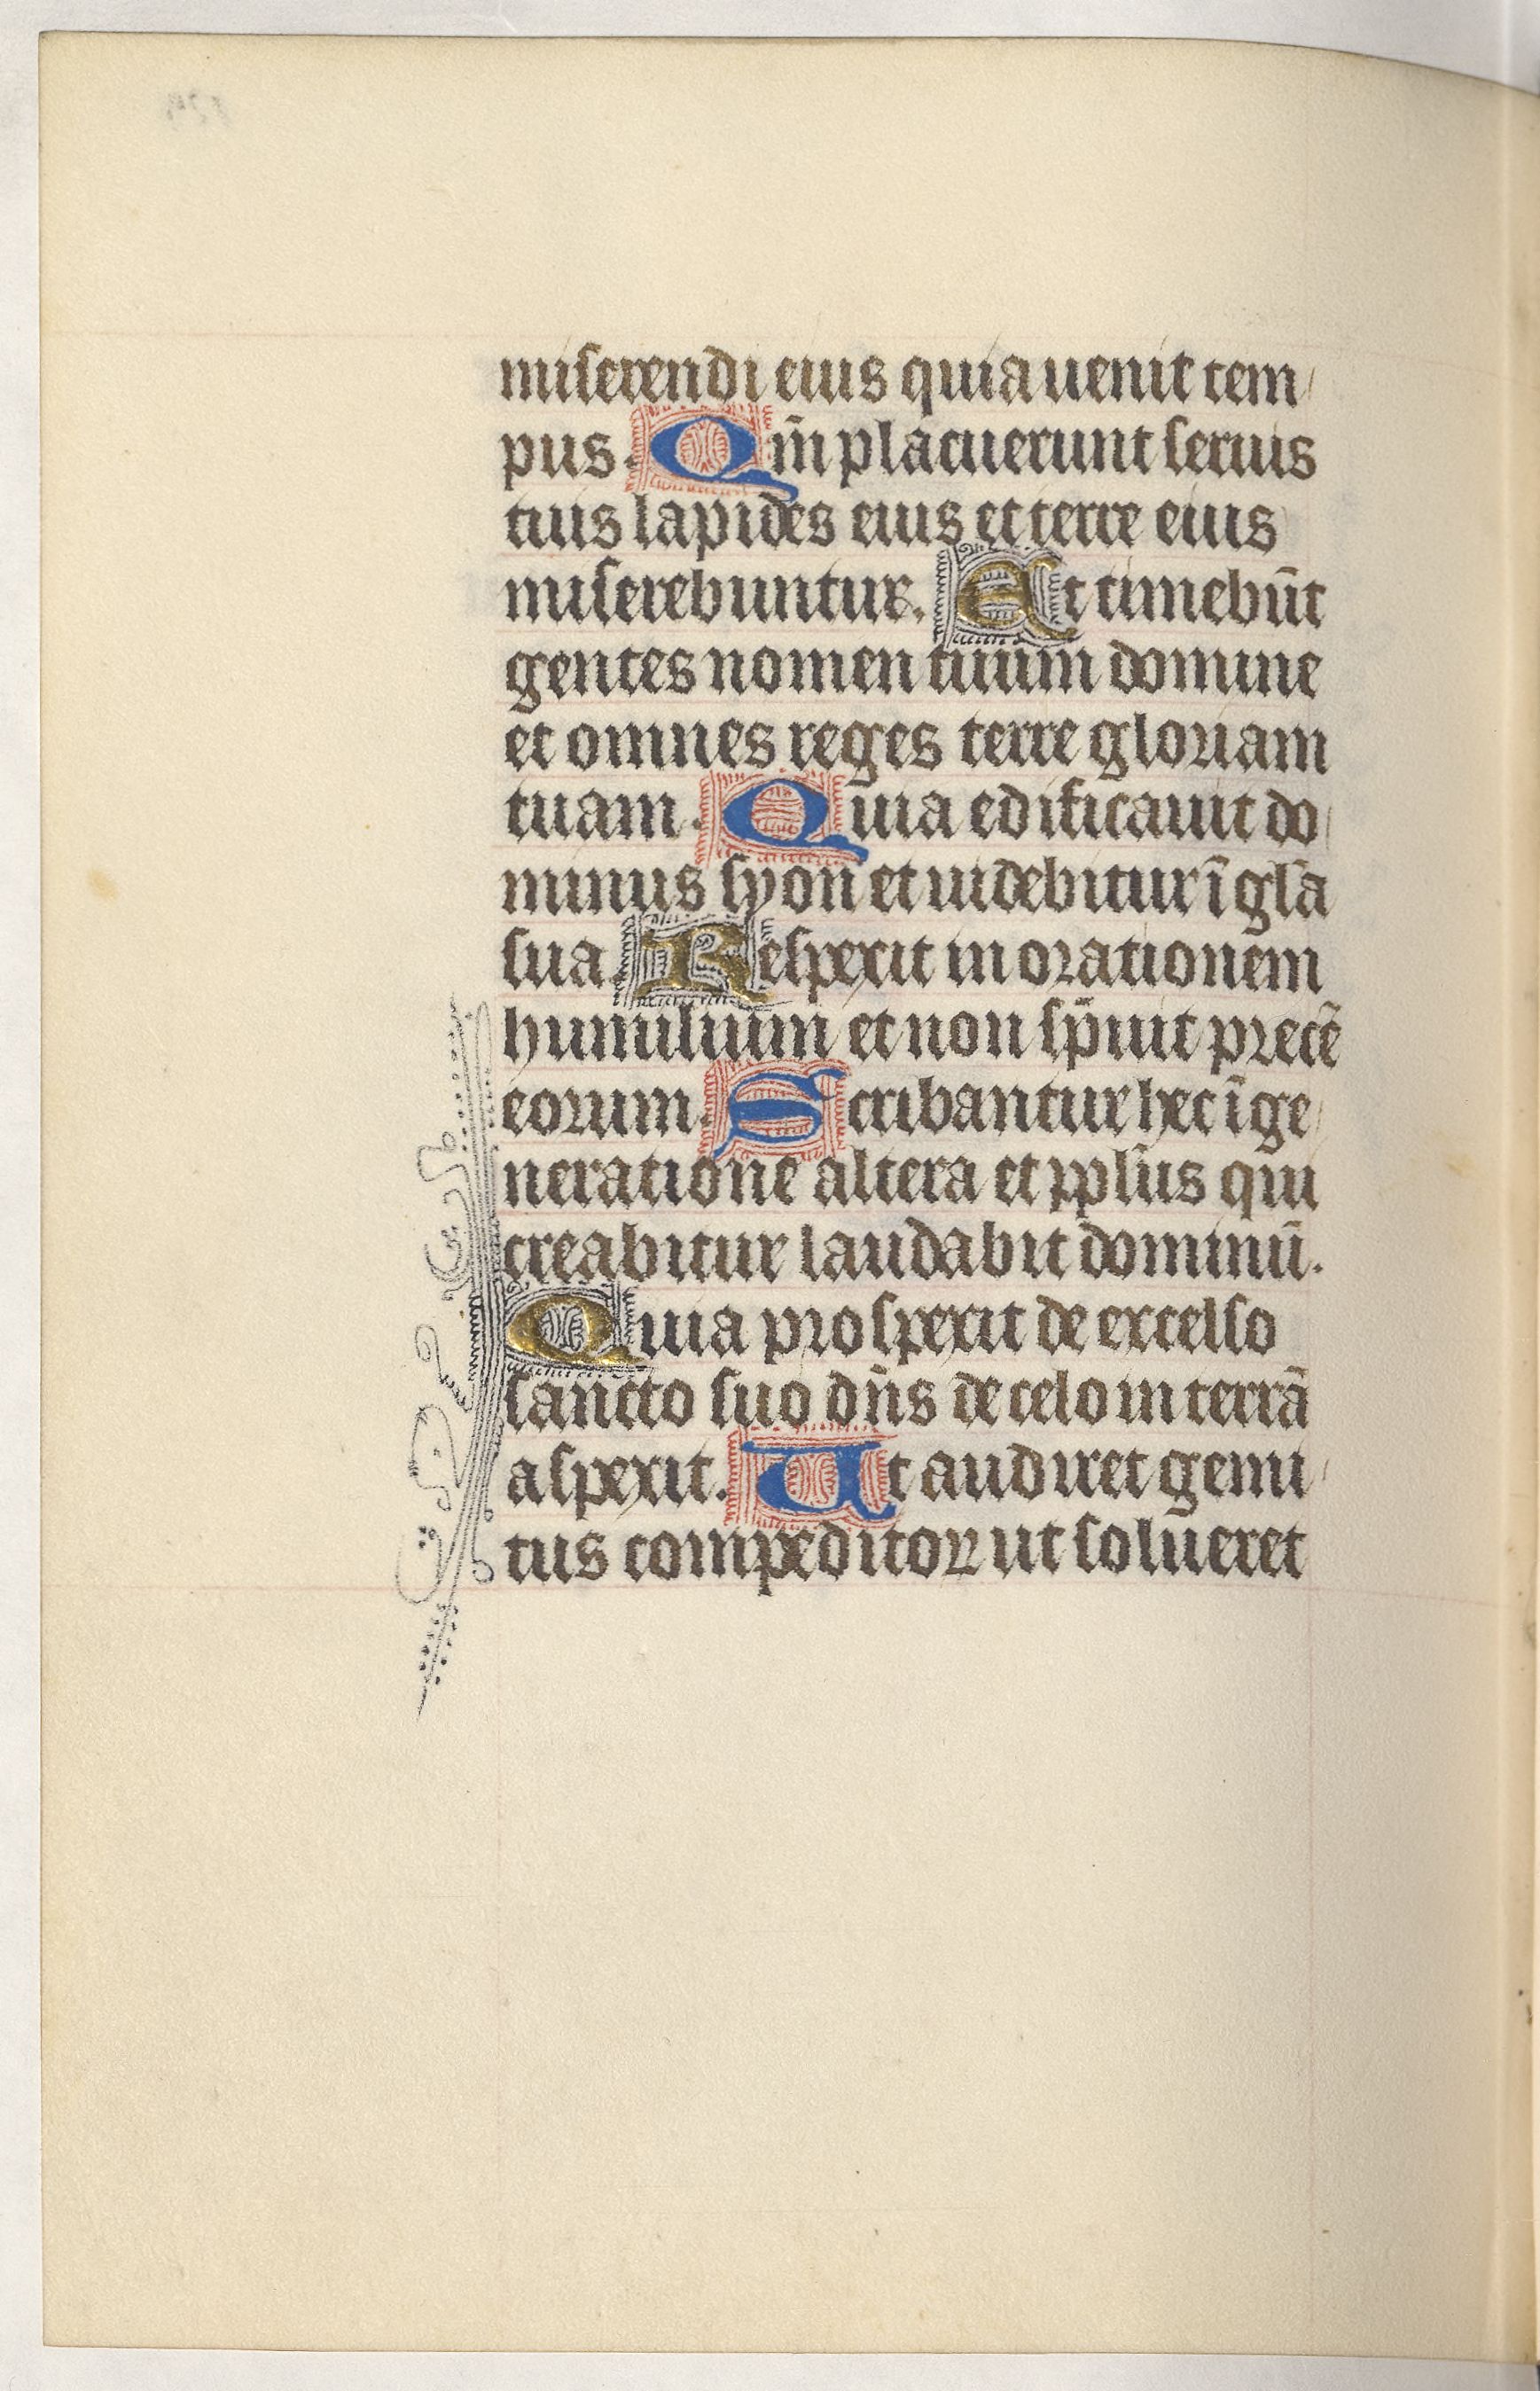 miserendi eius quia uenit tem
pus. Qm̄ placuerunt seruis
tuis lapides eius et terre eius
miserebuntur. Et timebūt
gentes nomen tuum domine
et omnes reges terre gloriam
tuam. Quia edificauit do
minus syon et uidebitur ī gl̄a
sua. Respexit in orationem
humilium et non sp̄uit precē
eorum. Scribantur hec ī ge
neratione altera et ppl̄us qui
creabitur laudabit dominū.
Quia prospexit de excelso
sancto suo dn̄s de celo in terrā
aspexit. Ut audiret gemi
tus compeditoꝝ ut solueret